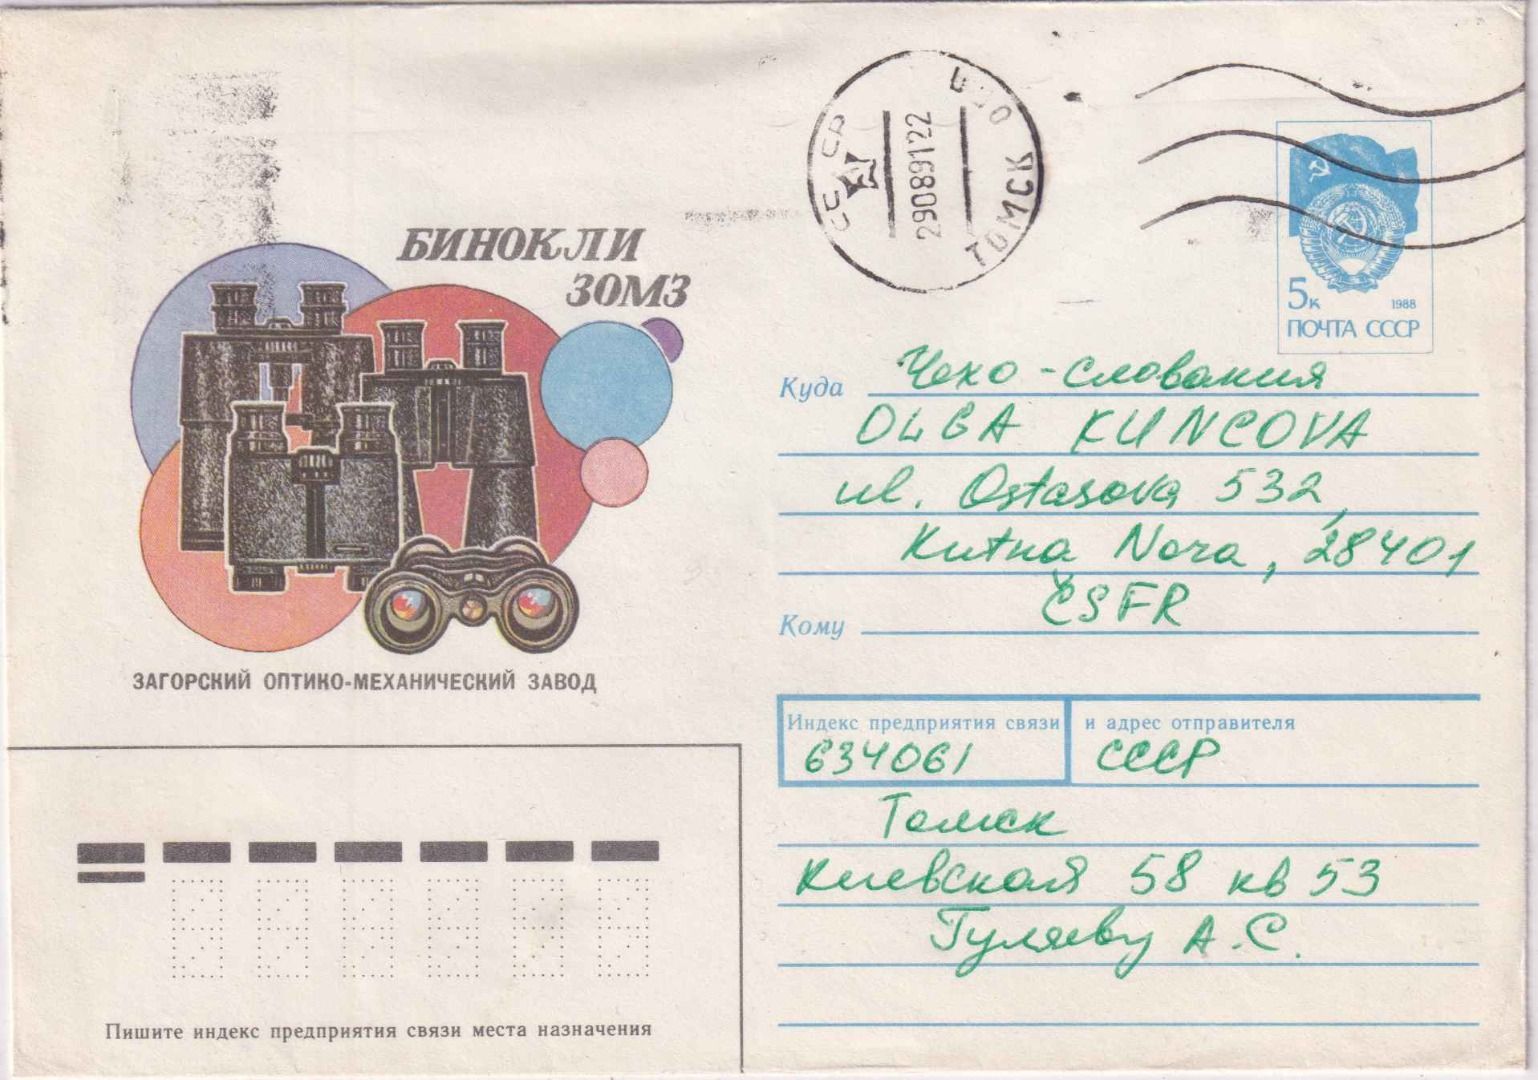 БИНОКЛИ
ЗОМЗ
ЗАГОРСКИЙ ОПТИКО-МЕХАНИЧЕСКИЙ ЗАВОД
СССР
290891 22
ТОМСК
5к
1988
ПОЧТА СССР
Куда Чехо-словакия
OLGA KUNCOVA
ul. Ostasova 532,
Kutna Hora, 28401
ČSFR
Кому
Индекс предприятия связи и адрес отправителя
634061 СССР
Томск
Киевская 58 кв 53
Гуляеву А.С.
Пишите индекс предприятия связи места назначения